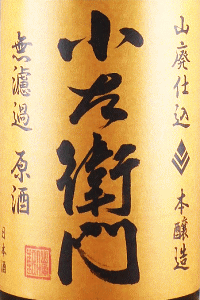 山廃仕込
本醸造
小左衛門
無濾過
原酒
日本酒